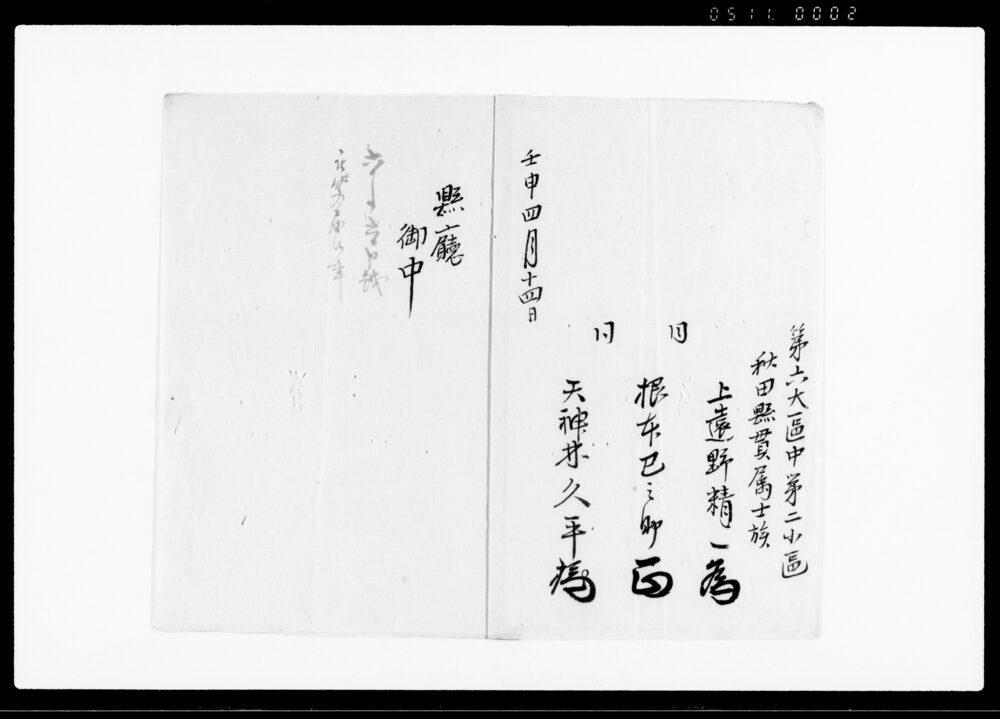 0511. 0002
第六大區中第二小區
秋田縣貫属士族
上遠野精一
同
根本巳之助
同
天神林久平
壬申四月十四日
縣廳
御中